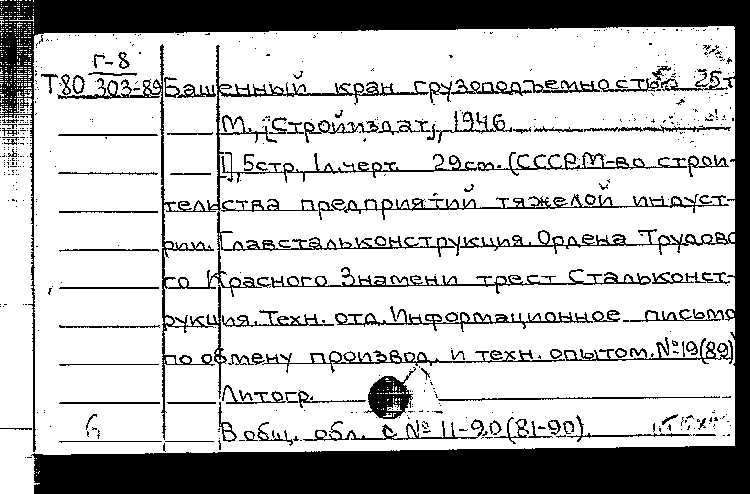 Г-8
Т80 303-89 Башенный кран грузоподъемностью 25т
М., [Стройиздат], 1946.
[1], 5стр., 1л.черт. 29см. (СССР. М-во строи-
тельства предприятий тяжелой индуст-
рии. Главстальконструкция. Ордена Трудово
го Красного Знамени трест Стальконст-
рукция. Техн. отд. Информационное письмо
по обмену производ. и техн. опытом. №19(89)
Литогр.
В общ. обл. с № 11-90(81-90).